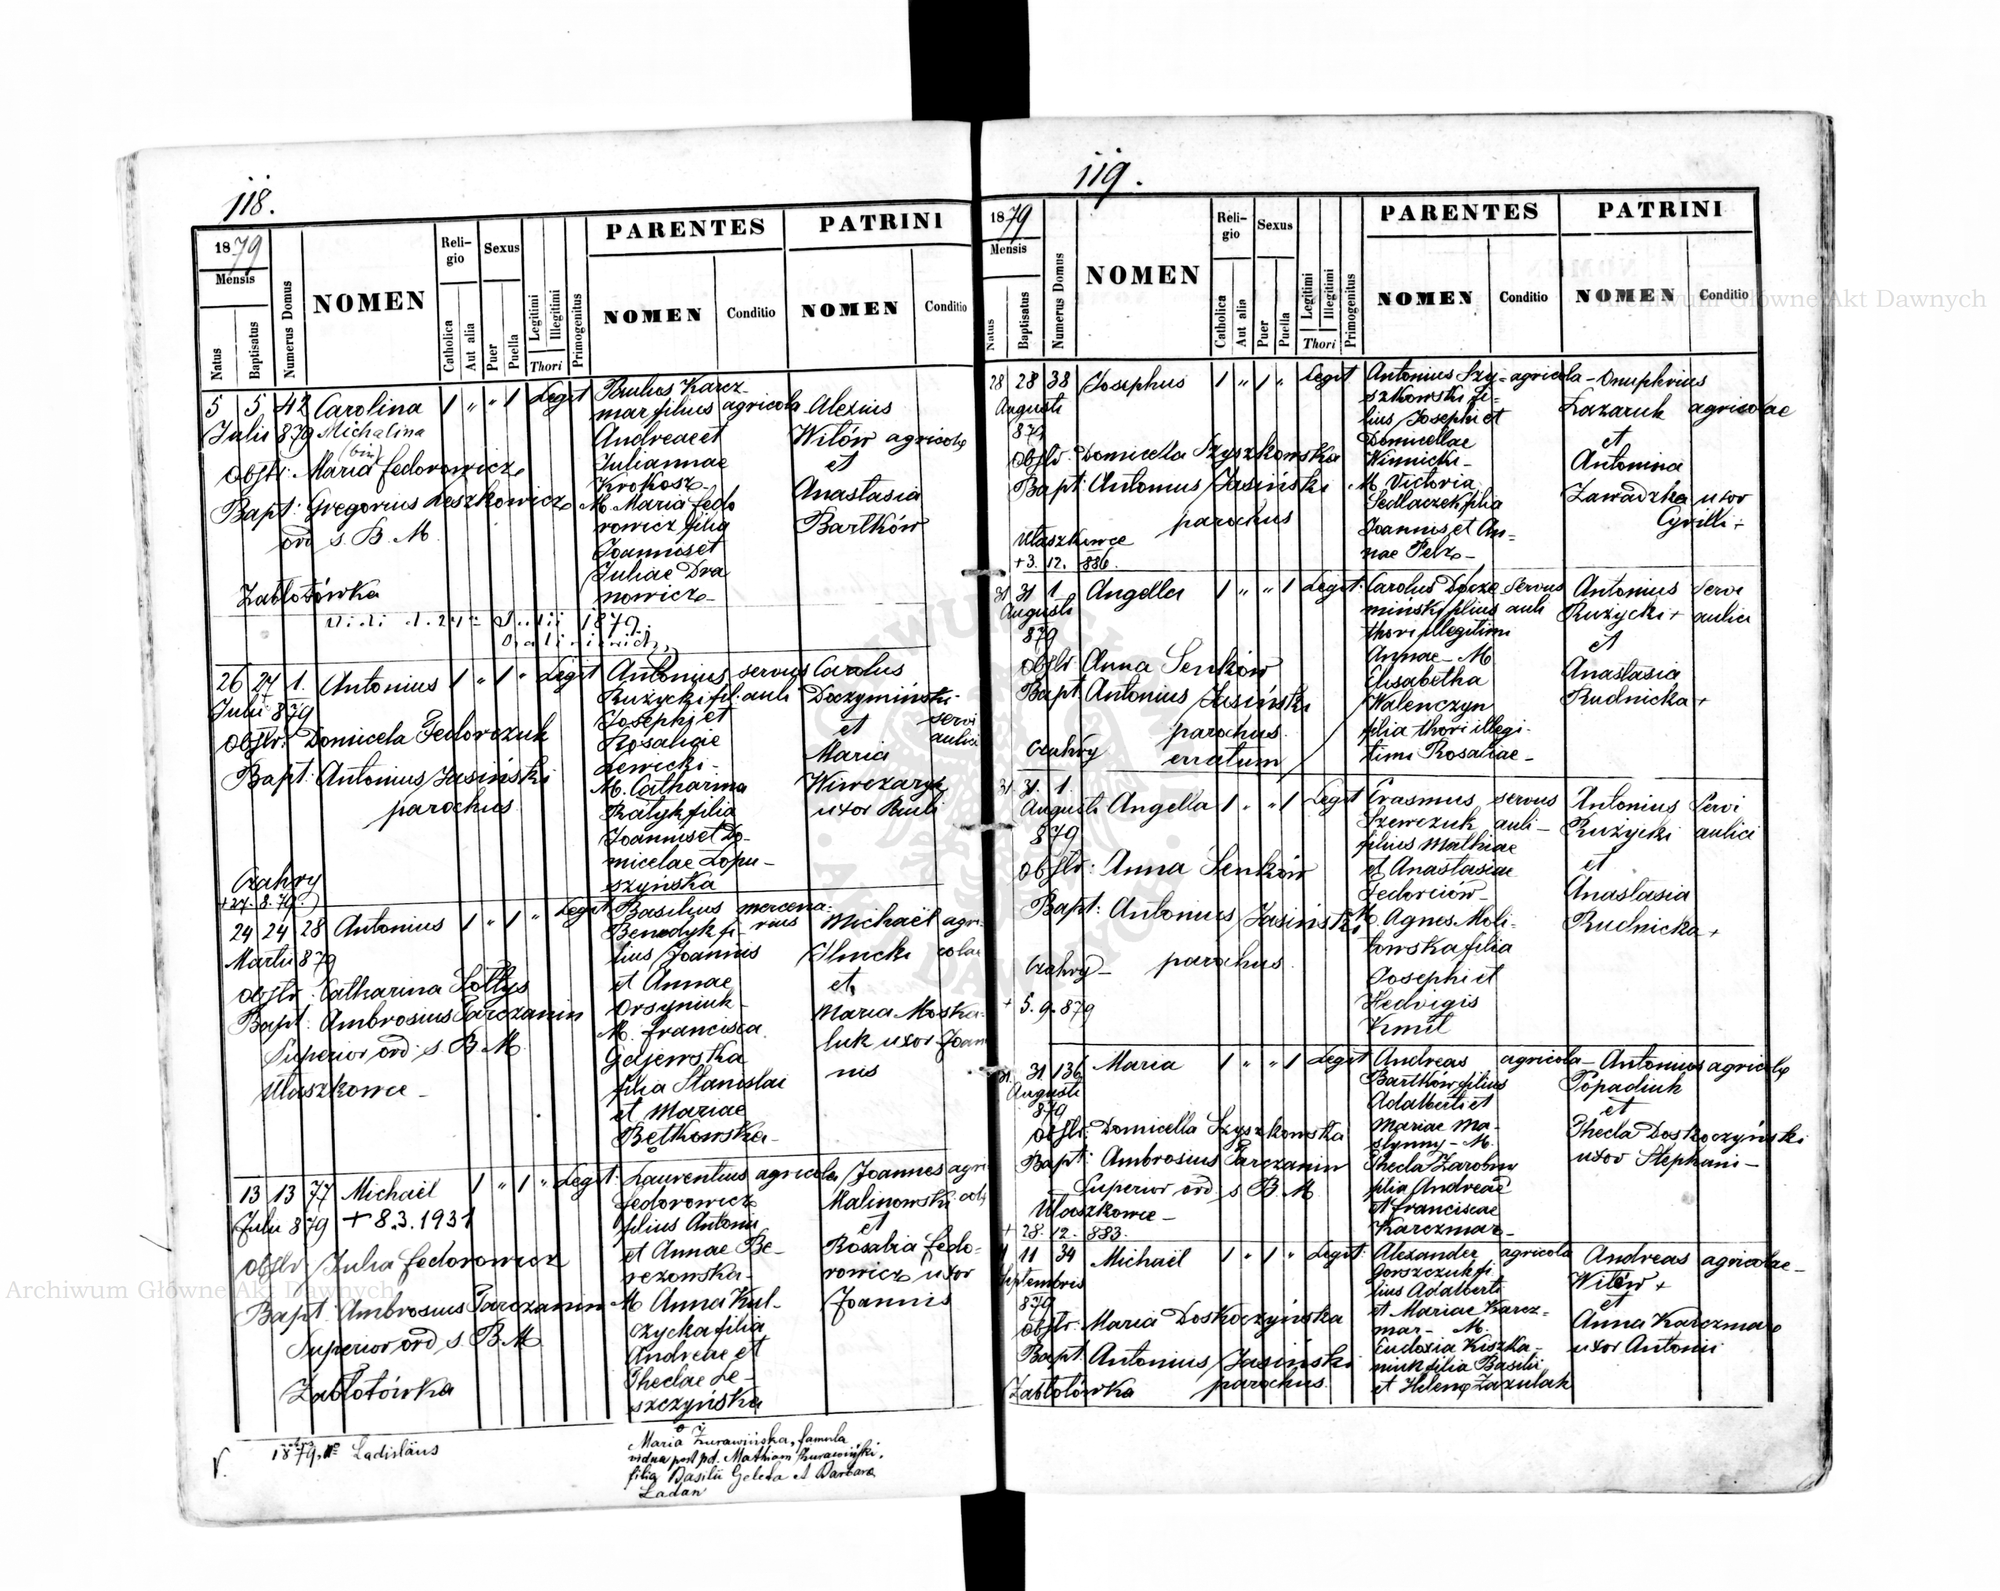 118.
1879
Mensis
Natus
Baptisatus
Numerus Domus
NOMEN
Religio
Catholica
Aut alia
Sexus
Puer
Puella
Legitimi
Illegitimi
Thori
Primogenitus
PARENTES
NOMEN
Conditio
PATRINI
NOMEN
Conditio
5 5 42 Carolina 1 " " 1 Legit Paulus Karcz-
mar filius agricola Alexius
Julii 879 Michalina
(bin)
Andreae et Witów agricolae
Obstr: Maria Fedorowicz
Juliannae et
Krokosz- Anastasia
Bapt: Gregorius Leszkowicz M. Maria Fedo
ord s. B. M. rowicz filia Bartków
Joannis et
Juliae Dra
Zabłotówka nowicz-
Vidi d. 24 Julii 1879.
26 27 1. Antonius 1 " 1 " Legit Antonius servus Carolus
Julii 879 Ruzycki fil. auli Doczymiński-
Josephi et et servi
Obstr: Domicela Fedorczuk Rosaliae aulici
Lewicki- Maria
Bapt: Antonius Jasiński M. Catharina Wiwczaryk
parochus Ratyk filia uxor Pauli
Joannis et Do-
micelae Łopu-
Czahry szyńska
+ 27. 8. 79.
24 24 28 Antonius 1 " 1 " Legit Basilius mercena-
Benedyk fi- rius Michaël agri-
Martii 879 lius Joannis Ilnicki colae
Obstr: Catharina Sołtys et Annae et
Orsyniuk- Maria Moska-
Bapt: Ambrosius Tarczanin M. Francisca luk uxor Joan
Superior ord: s. B. M. Gdjewska nis
Ułaszkowce - filia Stanislai
et Mariae
Bętkowska-
13 13 77 Michaël 1 " 1 " Legit: Laurentius agricola Joannes agri
Julii 879 + 8.3.1931 Fedorowicz Malinowski colae
filius Antonii et
Obstr Julia Fedorowicz et Annae Be- Rosalia Fedo-
rezowska- rowicz uxor
Bapt: Ambrosius Tarczanin M. Anna Kul- Joannis
Superior ord s. B. M. czycka filia
Andreae et
Zabłotówka Theclae Le-
szczyńska
V. 1879. Ladisläus
Maria Żurawińska, famula
vidua post pd. Mathiam Żurawiński,
filia Basilii Geleta et Barbara
Ładan
119.
1879
Mensis
Natus
Baptisatus
Numerus Domus
NOMEN
Religio
Catholica
Aut alia
Sexus
Puer
Puella
Legitimi
Illegitimi
Thori
Primogenitus
PARENTES
NOMEN
Conditio
PATRINI
NOMEN
Conditio
28 28 38 Josephus 1 " 1 " Legit Antonius Szy- agricola - Onuphrius
Augusti szkowski fi- Łazaruk agricolae
879 lius Josephi et et
Obstr Domicella Szyszkowska Domicellae
Winnicki- Antonina
Bapt: Antonius Jasiński M. Victoria Zawadzka uxor
parochus Sedlaczek filia Cyrilli +
Ułaszkowce Joannis et An-
+ 3. 12. 886. nae Pelz-
31 31 1 Angella 1 " " 1 Legit: Carolus Docze servus Antonius servi
Augusti miński filius auli Ruzycki + aulici
879 thori illegitimi et
Obstr Anna Senków Annae- M Anastasia
Elisabetha Rudnicka +
Bapt Antonius Jasiński Walenczyn
parochus filia thori illegi-
Czahry erratum timi Rosaliae-
31 31 1.
Augusti Angella 1 " " 1 Legit Erasmus servus Antonius servi
879 Szewczuk auli- Rużycki aulici
filius Mathiae et
Obstr: Anna Senków et Anastasiae Anastasia
Fedorciów- Rudnicka +
Bapt: Antonius Jasiński M Agnes Moli-
towska filia
Czahry- parochus Josephi et
+ 5. 9. 879 Hedvigis
Kmit
31 31 136 Maria 1 " " 1 Legit Andreas agricola- Antonius agricolae
Augusti Bartków filius Popadiuk
879 Adalberti et et
Obstr: Domicella Szyszkowska Mariae Ma- Thecla Doskoczyński
slynny- M. uxor Stephani-
Bapt: Ambrosius Tarczanin Thecla Zarobny
Superior ord: s B M filia Andreae
Ułaszkowce- et Franciscae
+ 28. 12. 883. Karczmar-
11 11 34 Michaël 1 " 1 " Legit: Alexander agricola Andreas agricolae-
Septembris Gorszczuk fi- Witów +
879 lius Adalberti et
Obstr: Maria Doskoczyńska et Mariae Karcz- Anna Karczmar
mar- M. uxor Antonii
Bapt Antonius Jasiński Eudoxia Kiszka-
parochus niuk filia Basilii
Zabłotówka et Helenae Zazulak
Archiwum Główne Akt Dawnych
Archiwum Główne Akt Dawnych